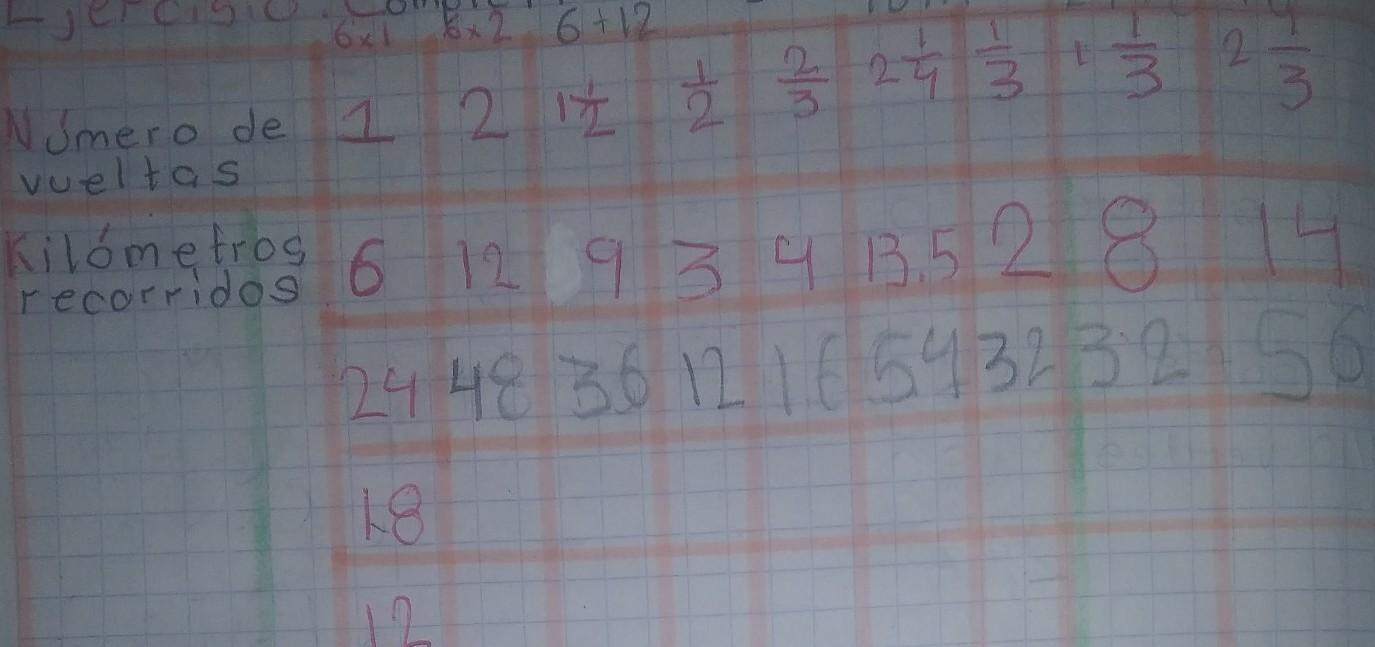 Ejercisio.
6x1 6x2 6+12
Número de vueltas 1 2 1 1/2 1/2 2/3 2 1/4 1/3 1 1/3 2 1/3
Kilómetros recorridos 6 12 9 3 4 13.5 2 8 14
24 48 36 12 16 54 32 32 56
18
12